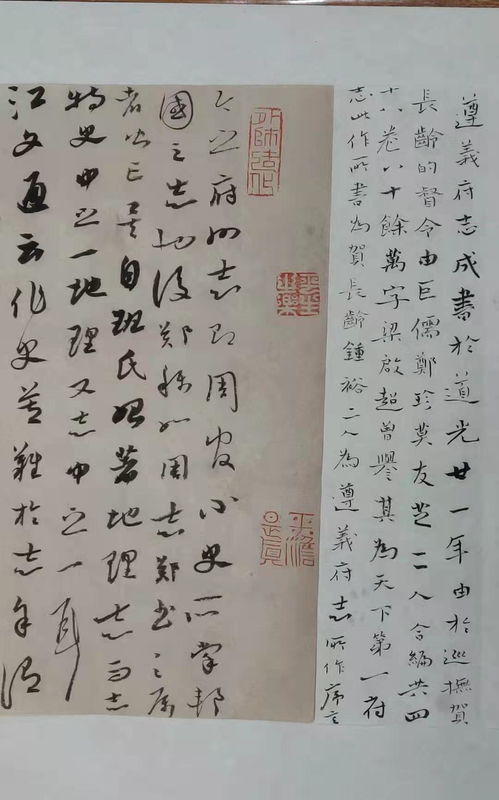 遵義府志成書於道光廿一年由於巡撫賀
長齡的督令由巨儒鄭珍莫友芝二人合編共四
十八卷八十餘萬字梁啟超曾譽其為天下第一府
志此作所書為賀長齡鍾裕二人為遵義府志所作序言
平生
幽樂
平澹
是真
今之府州志即周官小史所掌邦
國之志也後鄭稱如周志鄭書之屬
者也已是自班氏始著地理志而志
特史中之一地理又志中之一耳
江文通云作史莫難於志自